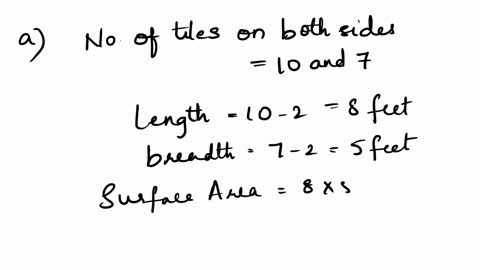 a) No. of tiles on both sides
= 10 and 7
Length = 10 - 2 = 8 feet
breadth = 7 - 2 = 5 feet
Surface Area = 8 x 5